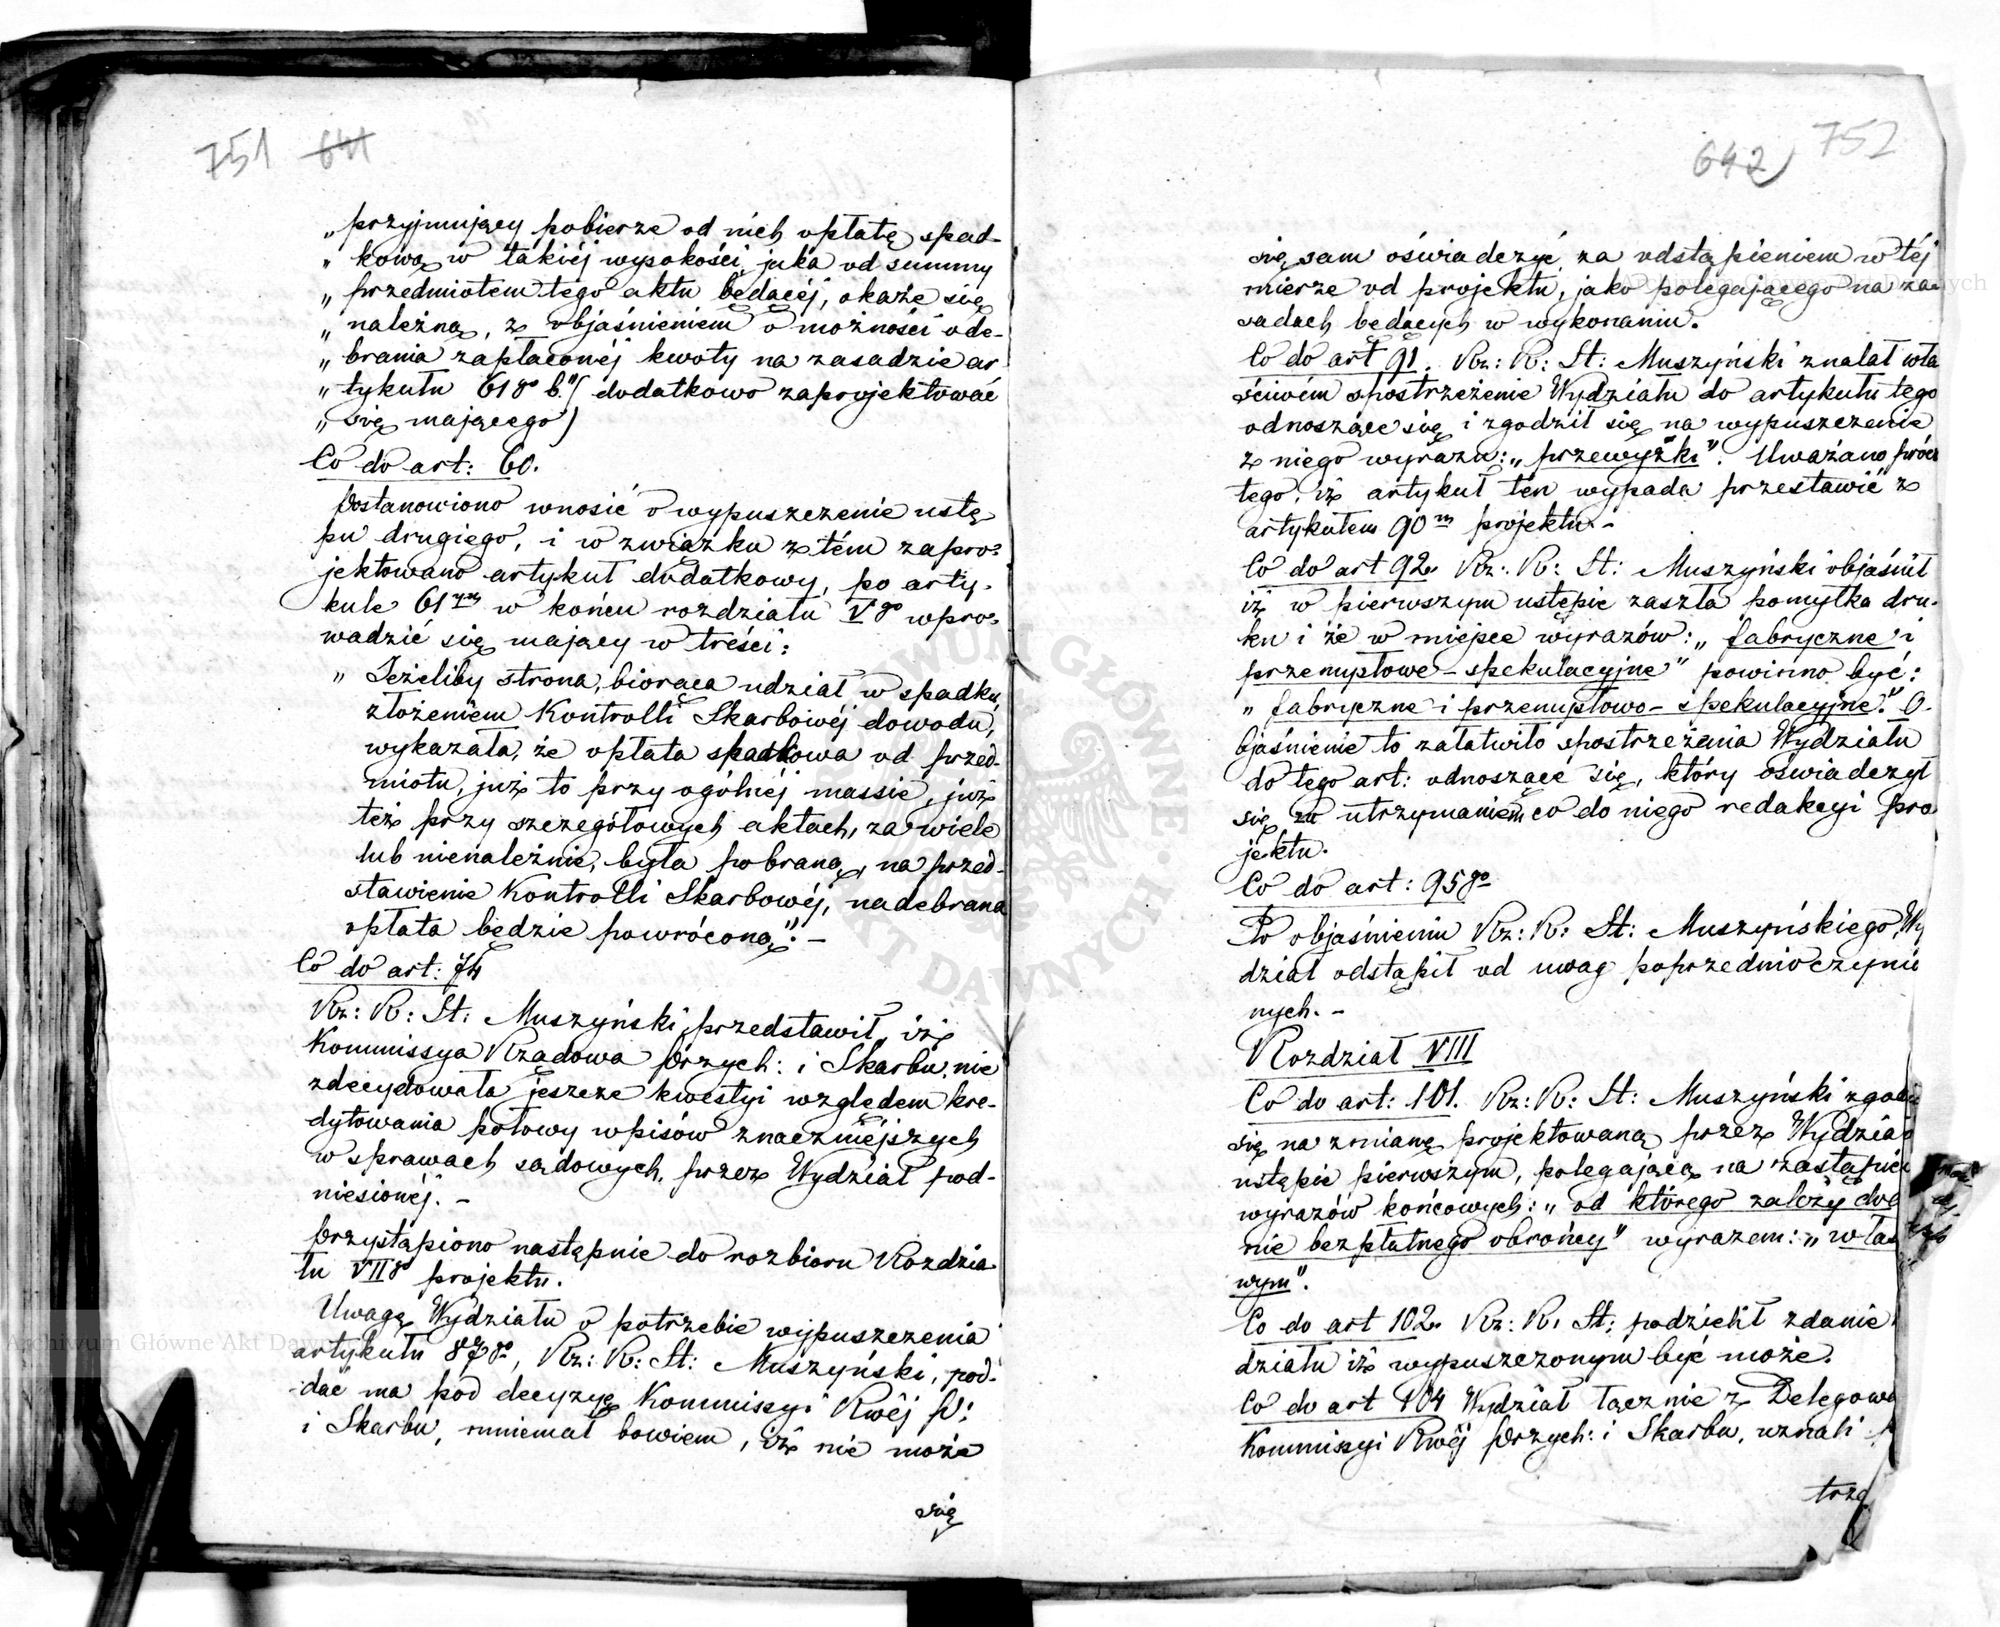 751 641
„przyjmujący pobierze od nich opłatę spad-
„kową w takiéj wysokości, jaka od summy
„przedmiotem tego aktu będącéj, okaże się
„należną, z objaśnieniem o możności ode-
„brania zapłaconéj kwoty na zasadzie ar
„tykułu 61go b.) (dodatkowo zaprojektować
„się mającego)
Co do art: 60.
Postanowiono wnosić o wypuszczenie ustę
pu drugiego, i w związku z tém zapro-
jektowano artykuł dodatkowy, po arty-
kule 61ym w końcu rozdziału Vgo wpro-
wadzić się mający w treści:
„Jeżeliby strona, biorąca udział w spadku,
złożeniem Kontrolli Skarbowéj dowodu,
wykazała, że opłata spadkowa od przed-
miotu, już to przy ogólnéj massie, już
téż przy szczegółowych aktach, za wiele
lub nienależnie, była pobraną, na przed-
stawienie Kontrolli Skarbowéj, nadebrana
opłata będzie powróconą". –
Co do art: 74
Rz: R: St: Muszyński przedstawił, iż
Kommissya Rządowa Przych: i Skarbu, nie
zdecydowała jeszcze kwestyi względem kre-
dytowania połowy wpisów znaczniejszych
w sprawach sądowych, przez Wydział pod-
niesionéj. –
Przystąpiono następnie do rozbioru Rozdzia
łu VIIgo projektu.
Uwagę Wydziału o potrzebie wypuszczenia
artykułu 87go, Rz: R: St: Muszyński, pod-
dać ma pod decyzyę Kommissyi Rwéj P:
i Skarbu, mniemał bowiem, iż nie może
się
642 752
się sam oświadczyć za odstąpieniem w téj
mierze od projektu, jako polegającego na za-
sadach będących w wykonaniu.
Co do art 91. Rz: R: St: Muszyński znalał wła
ściwém spostrzeżenie Wydziału do artykułu tego
odnoszące się i zgodził się na wypuszczenie
z niego wyrazu: „przewyżki". Uważano prócz
tego, iż artykuł ten wypada przestawić z
artykułem 90m projektu. –
Co do art 92. Rz: R: St: Muszyński objaśnił
iż w pierwszym ustępie zaszła pomyłka dru-
ku i że w miejsce wyrazów: „fabryczne i
przemysłowe – spekulacyjne" powinno być:
„fabryczne i przemysłowo – spekulacyjne." O-
bjaśnienie to załatwiło spostrzeżenia Wydziału
do tego art: odnoszące się, który oświadczył
się za utrzymaniem co do niego redakcyi pro
jektu.
Co do art: 95go
Po objaśnieniu Rz: R: St: Muszyńskiego, Wy
dział odstąpił od uwag poprzednio czynio
nych. –
Rozdział VIII
Co do art: 101. Rz: R: St: Muszyński zgodził
się na zmianę projektowaną przez Wydział
ustępie pierwszym, polegającą na zastąpie
wyrazów końcowych: „od którego zależy dod
nie bezpłatnego obrońcy" wyrazem: „właś
wym".
Co do art 102. Rz: R: St: podzielił zdanie
działu iż wypuszczonym być może.
Co do art 104 Wydział łącznie z Delegowa
Kommissyi Rwéj Przych: i Skarbu, uznali
trze
Archiwum Główne Akt Dawnych
ARCHIWUM GŁÓWNE AKT DAWNYCH